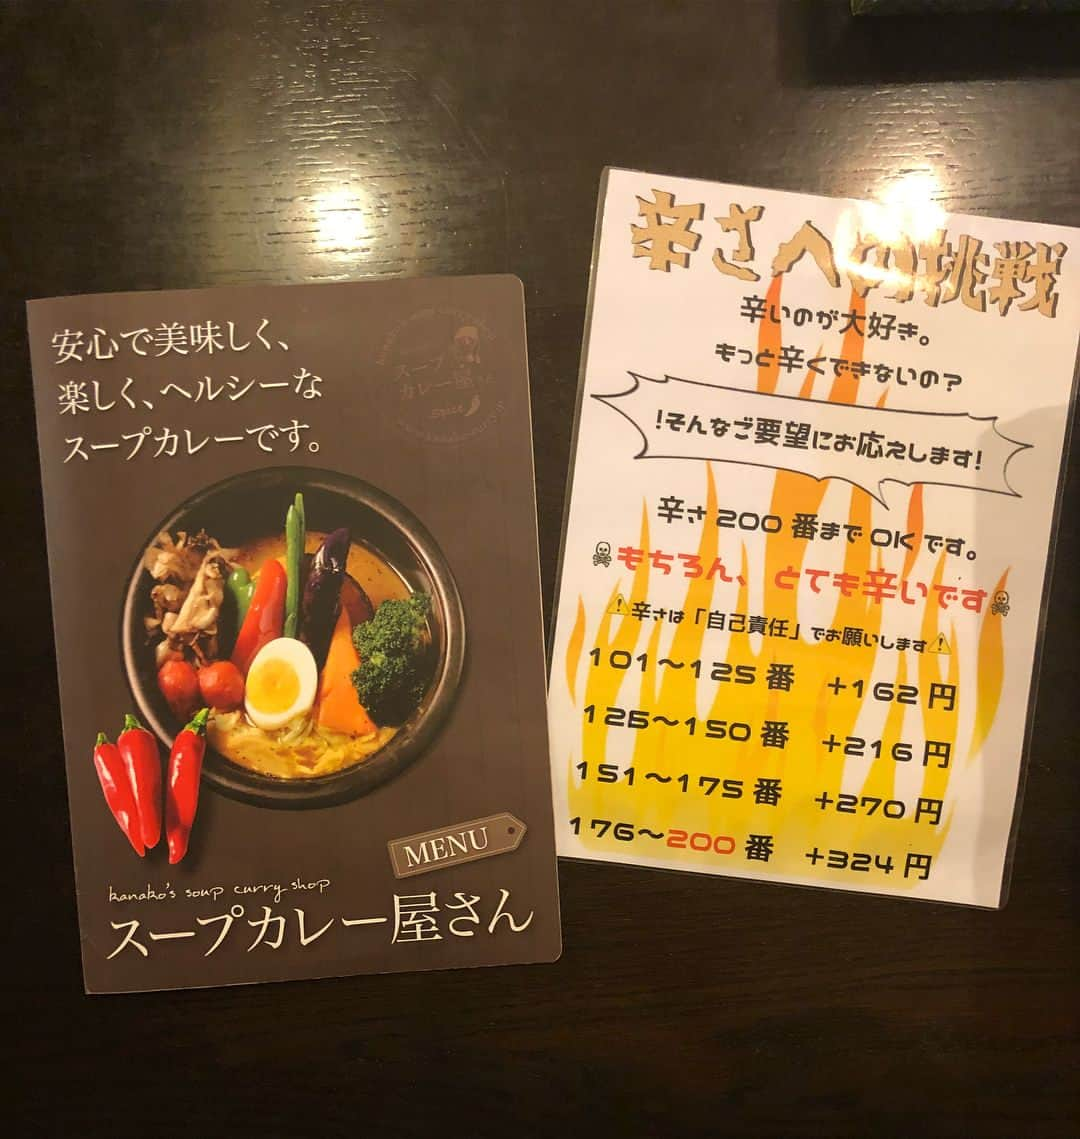 安心で美味しく、
楽しく、ヘルシーな
スープカレーです。
スープ
カレー屋
Spice
MENU
kanako's soup curry shop
スープカレー屋さん
辛さへの挑戦
辛いのが大好き。
もっと辛くできないの？
!そんなご要望にお応えします!
辛さ200番までOKです。
もちろん、とても辛いです
辛さは「自己責任」でお願いします
101〜125番 +162円
125〜150番 +216円
151〜175番 +270円
176〜200番 +324円